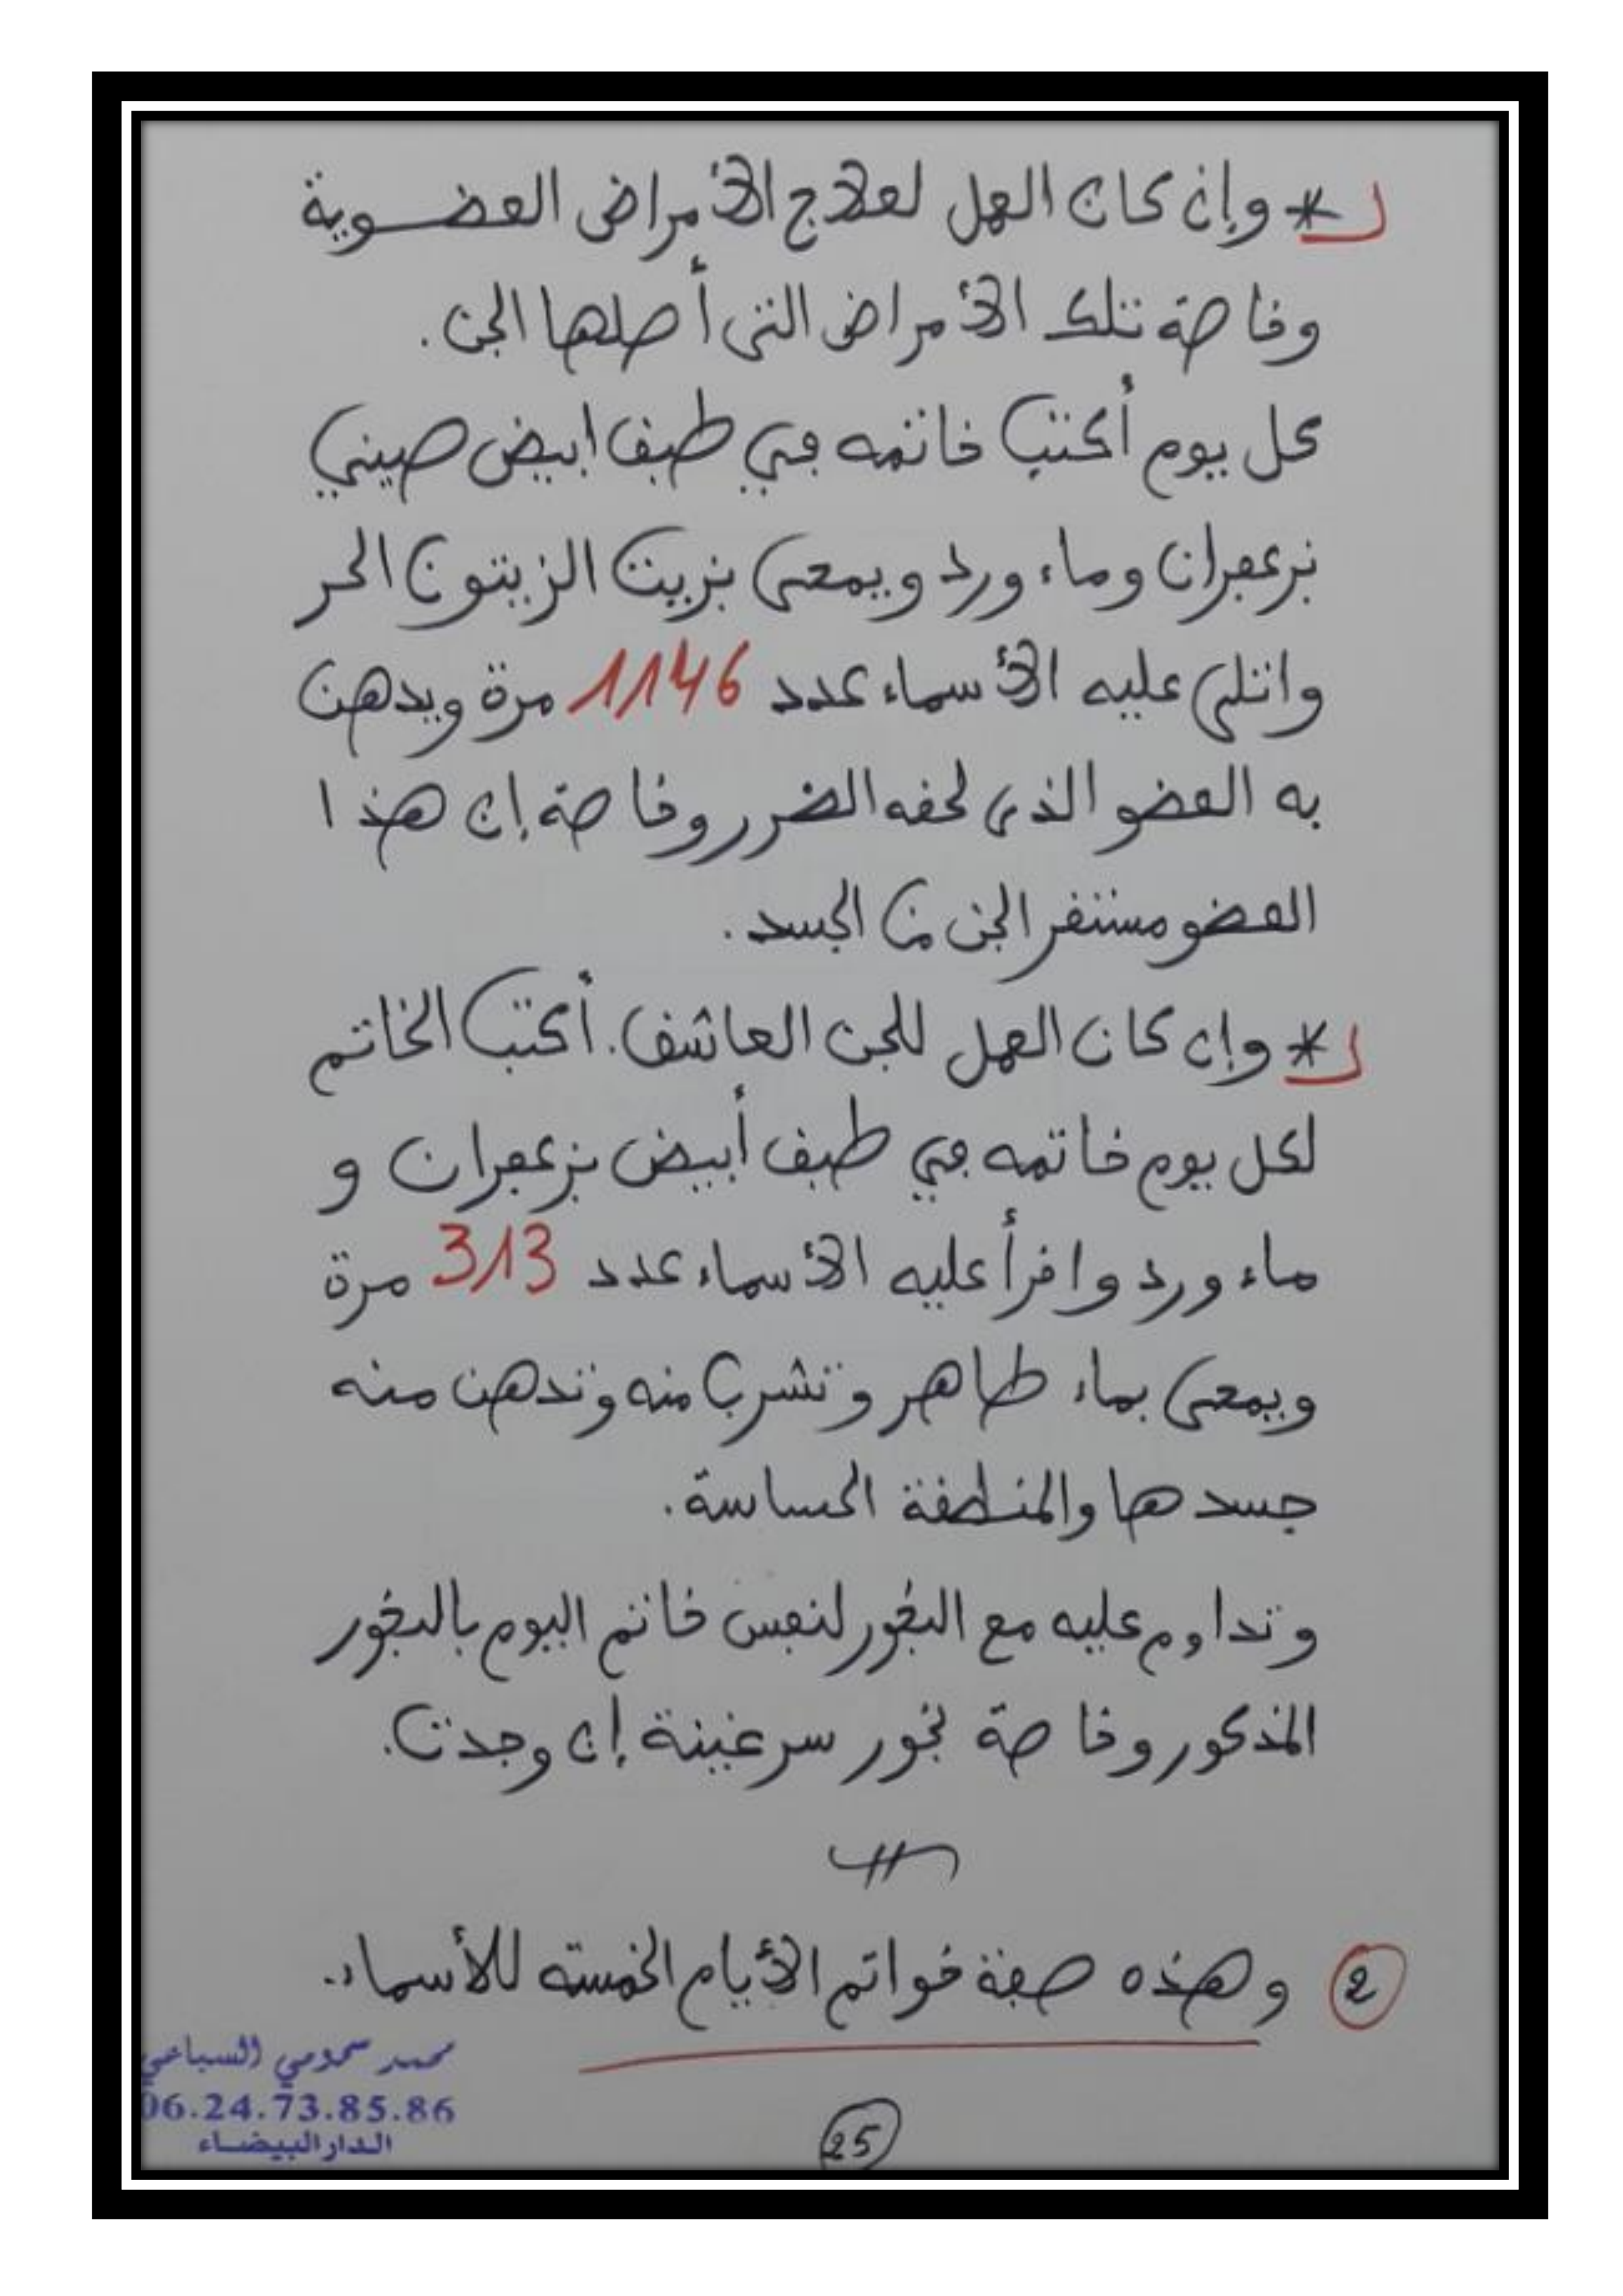 * وإن كان العمل لعلاج الأمراض العضوية
وخاصة تلك الأمراض التي أصلها الجن.
كل يوم أكتب خاتمه في طبق ابيض صيني
بزعفران وماء ورد ويمحى بزيت الزيتون الحر
واتلى عليه الأسماء عدد 1146 مرة ويدهن
به العضو الذي لحقه الضرر وخاصة إن هذا
العضو مستقر الجن من الجسد.
* وإن كان العمل للجن العاشق. أكتب الخاتم
لكل يوم خاتمه في طبق أبيض بزعفران و
ماء ورد واقرأ عليه الأسماء عدد 313 مرة
ويمحى بماء طاهر وتشرب منه وتدهن منه
جسدها والمنطقة الحساسة.
وتداوم عليه مع البخور لنفس خاتم اليوم بالبخور
المذكور وخاصة بخور سرغينة إن وجدت.
2 وهذه صفة خواتم الأيام الخمسة للأسماء.
محمد السباعي
06.24.73.85.86
الدار البيضاء
25